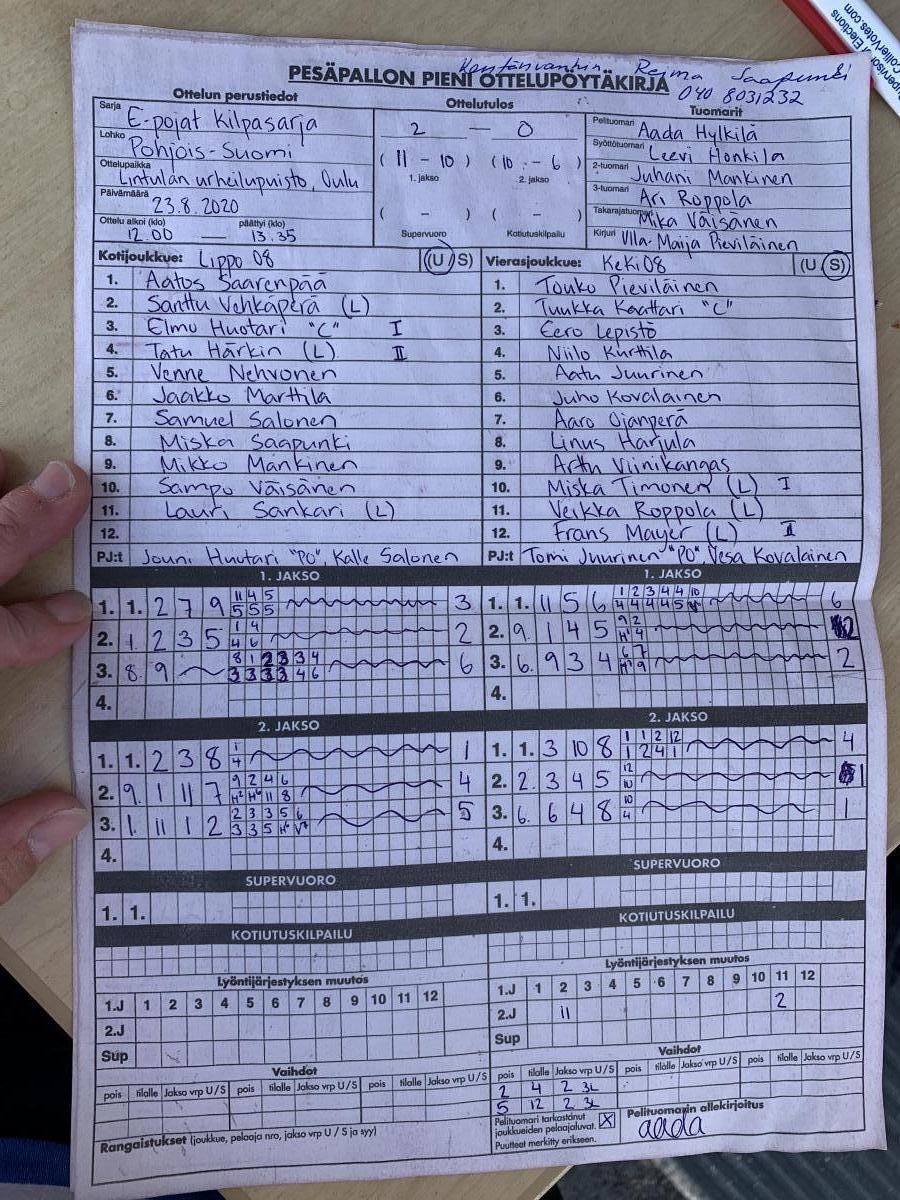 Supervisor of Elections
CollierVotes.com
Kentänvanhin Reima Saapunki
PESÄPALLON PIENI OTTELUPÖYTÄKIRJA 040 8031232
Ottelun perustiedot
Sarja E-pojat Kilpasarja
Lohko Pohjois-Suomi
Ottelupaikka Lintulan urheilupuisto, Oulu
Päivämäärä 23.8.2020
Ottelu alkoi (klo) päättyi (klo)
12.00 — 13.35
Ottelutulos
2 — 0
( 11 - 10 ) ( 10 - 6 )
1. jakso 2. jakso
( - ) ( - )
Supervuoro Kotiutuskilpailu
Tuomarit
Pelituomari Aada Hylkilä
Syöttötuomari Leevi Honkila
2-tuomari Juhani Mankinen
3-tuomari Ari Roppola
Takarajatuomari Mika Väisänen
Kirjuri Ulla-Maija Pieviläinen
Kotijoukkue: Lippo 08 (U / S)
1. Aatos Saarenpää
2. Santtu Vehkaperä (L)
3. Elmo Huotari "C" I
4. Tatu Härkin (L) II
5. Venne Nehvonen
6. Jaakko Marttila
7. Samuel Salonen
8. Miska Saapunki
9. Mikko Mankinen
10. Sampo Väisänen
11. Lauri Sankari (L)
12.
PJ:t Jouni Huotari "PO", Kalle Salonen
Vierasjoukkue: Keki 08 (U / S)
1. Touko Pieviläinen
2. Tuukka Kaattari "C"
3. Eero Lepistö
4. Niilo Kurttila
5. Aatu Juurinen
6. Juho Kovalainen
7. Aaro Ojanperä
8. Linus Harjula
9. Arttu Viinikangas
10. Miska Timonen (L) I
11. Veikka Roppola (L)
12. Frans Mayer (L) II
PJ:t Tomi Juurinen "PO", Vesa Kovalainen
1. JAKSO
11 4 5
1. 1. 2 7 9 5 5 5 3
1 4
2. 1 2 3 5 4 6 2
8 1 2 3 3 4
3. 8. 9 3 3 3 3 4 6 6
4.
2. JAKSO
1
1. 1. 2 3 8 4 1
9 2 4 6
2. 9. 1 11 7 H² H⁶ 11 8 4
2 3 3 5 6
3. 1. 11 1 2 3 3 5 H⁶ V⁷ 5
4.
SUPERVUORO
1. 1.
KOTIUTUSKILPAILU
Lyöntijärjestyksen muutos
1.J 1 2 3 4 5 6 7 8 9 10 11 12
2.J
Sup
Vaihdot
pois tilalle Jakso vrp U / S pois tilalle Jakso vrp U / S pois tilalle Jakso vrp U / S
Rangaistukset (joukkue, pelaaja nro, jakso vrp U / S ja syy)
1. JAKSO
1 2 3 4 4 10
1. 1. 11 5 6 4 4 4 4 5 6
9 2
2. 9. 1 4 5 4 2
6 7
3. 6. 9 3 4 9 2
4.
2. JAKSO
1 1 2 12
1. 1. 3 10 8 1 2 4 1 4
12
2. 2. 3 4 5 10 1
10
3. 6. 6 4 8 4 1
4.
SUPERVUORO
1. 1.
KOTIUTUSKILPAILU
Lyöntijärjestyksen muutos
1.J 1 2 3 4 5 6 7 8 9 10 11 12
2.J 11 2
Sup
Vaihdot
pois tilalle Jakso vrp U / S pois tilalle Jakso vrp U / S pois tilalle Jakso vrp U / S
2 4 2 3L
5 12 2 3L
Pelituomari tarkastanut
joukkueiden pelaajaluvat. X
Puutteet merkitty erikseen.
Pelituomarin allekirjoitus
aada